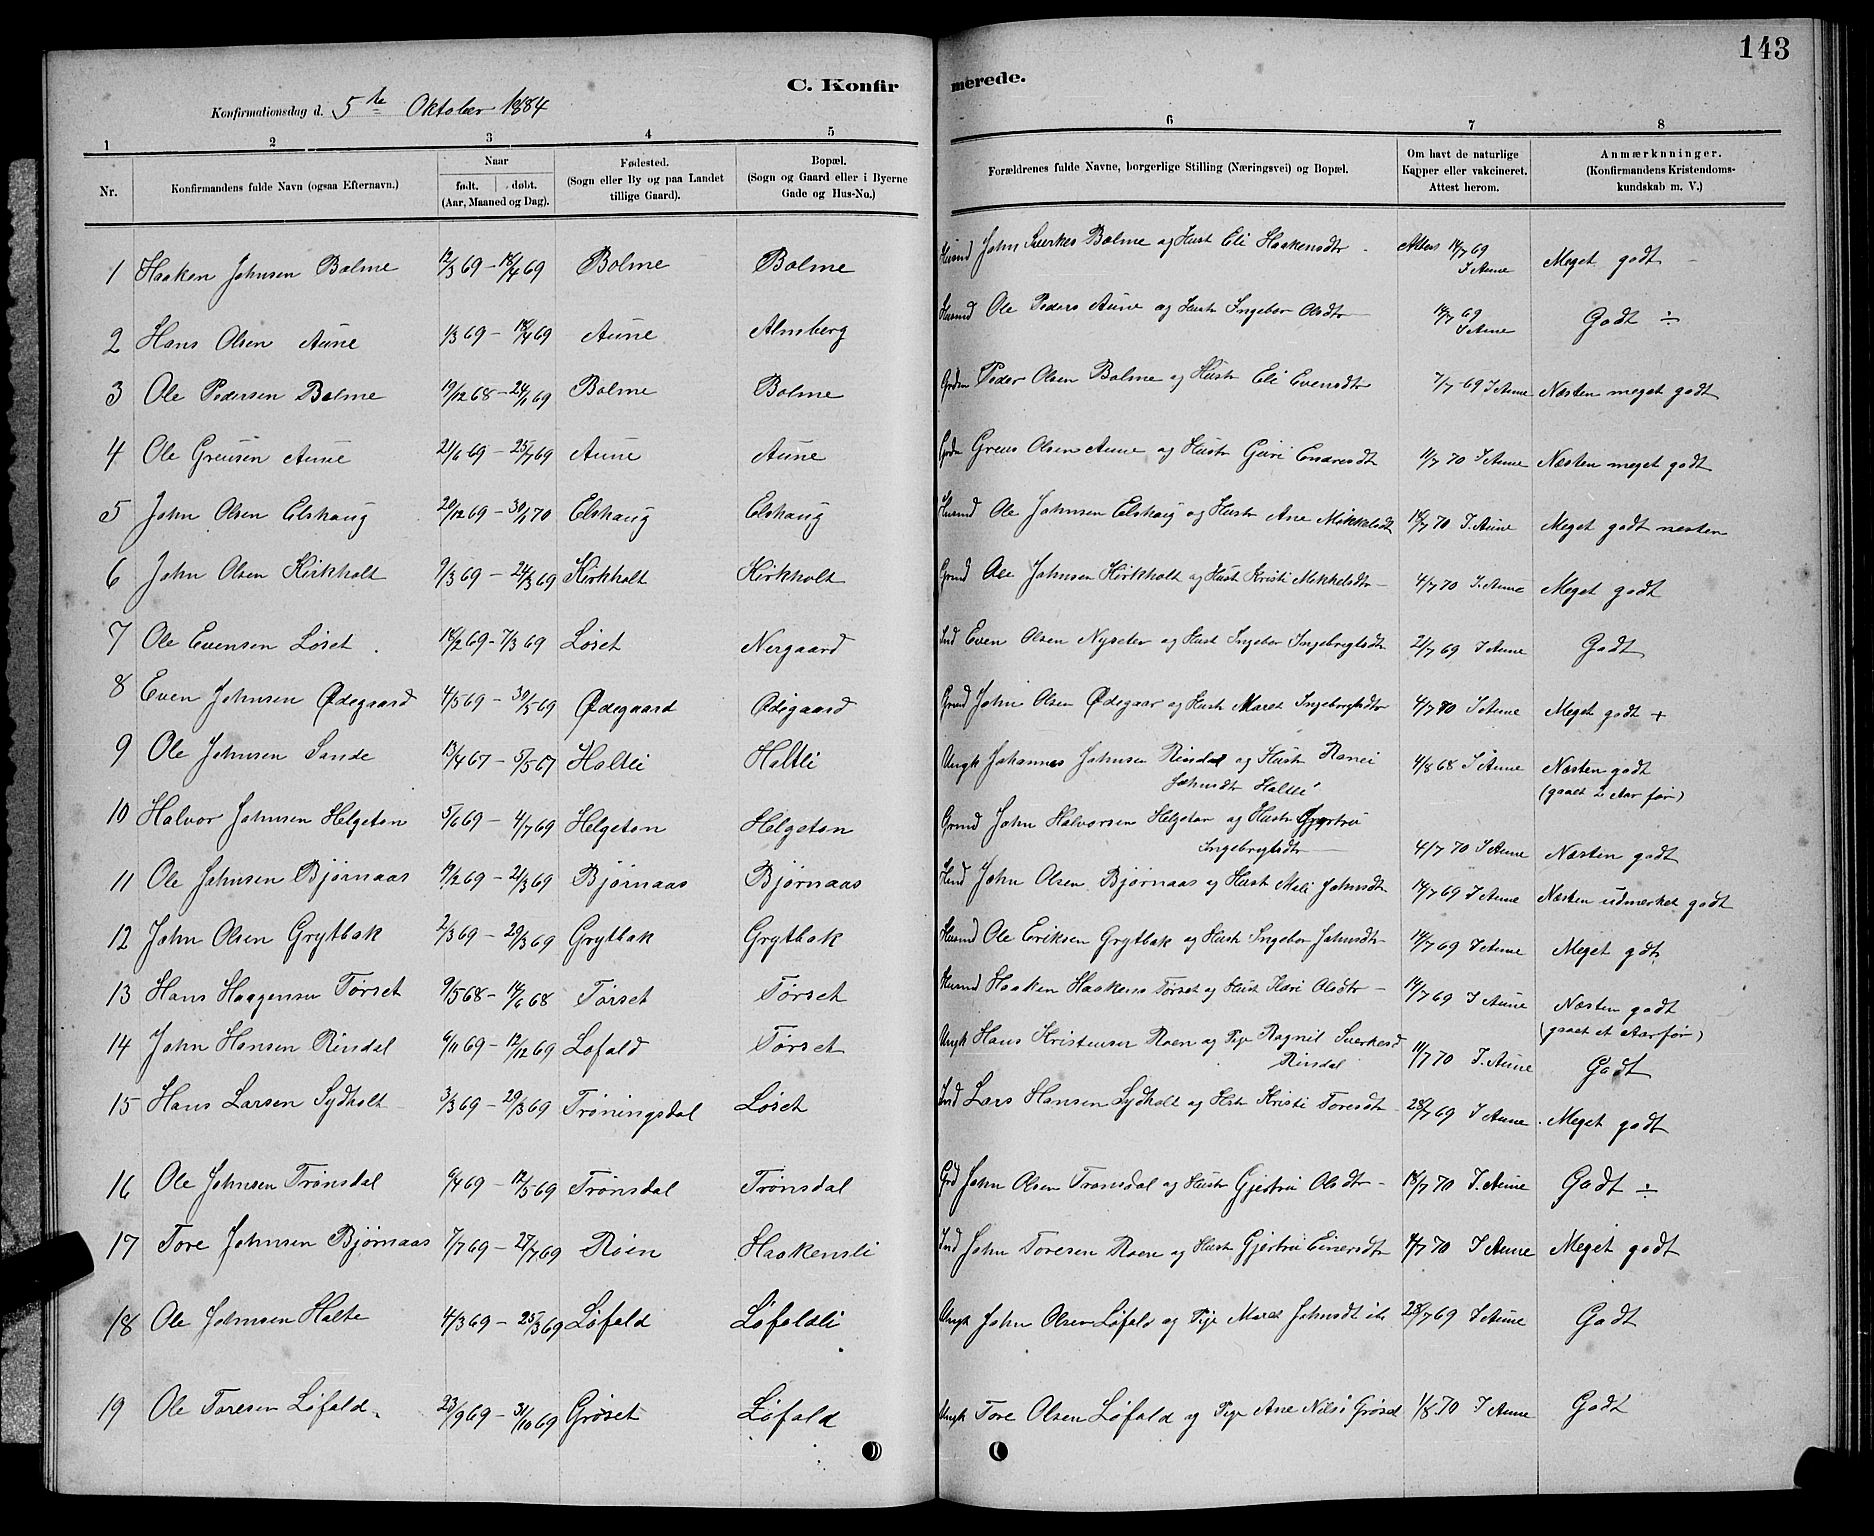 143
C. Konfirmerede.
Konfirmationsdag d. 5te Oktober 1884
1 2 3 4 5 6 7 8
Nr. | Konfirmandens fulde Navn (ogsaa Efternavn.) | Naar født. døbt. (Aar, Maaned og Dag). | Fødested. (Sogn eller By og paa Landet tillige Gaard). | Bopæl. (Sogn og Gaard eller i Byerne Gade og Hus-No.) | Forældrenes fulde Navne, borgerlige Stilling (Næringsvei) og Bopæl. | Om havt de naturlige Kapper eller vakcineret. Attest herom. | Anmærkninger. (Konfirmandens Kristendomskundskab m. V.)
1 Haaken Johnsen Bolme 12/3 69 – 18/4 69 Bolme Bolme Husmd John Sverkes Bolme og Hust Eli Haakensdtr Attest 14/7 69 I Aune Meget godt
2 Hans Olsen Aune 1/3 69 – 18/4 69 Aune Almberg Husmd Ole Peders Aune og Hust Ingebor Olsdtr 14/7 69 I Aune Godt ÷
3 Ole Pedersen Bolme 19/12 68 – 24/1 69 Bolme Bolme Peder Olsen Bolme og Hustr Eli Evensdtr 7/7 69 I Aune Næsten meget godt
4 Ole Greusen Aune 21/6 69 – 25/7 69 Aune Aune Greus Olsen Aune og Hustr Guri Endresdtr 11/7 70 I Aune Næsten meget godt
5 John Olsen Elshaug 20/12 69 – 30/1 70 Elshaug Elshaug Husmd Ole Johnsen Elshaug og Hustr Ane Mikkelsdtr 18/7 70 I. Aune Meget godt nesten
6 John Olsen Kirkholt 9/3 69 – 24/3 69 Kirkholt Kirkholt Grmd Ole Johnsen Kirkholt og Hust Kristi Mikkelsdtr 4/7 70 I. Aune Meget godt
7 Ole Evensen Løset 18/2 69 – 7/3 69 Løset Nergaard Ind Even Olsen Nyseter og Hust Ingebor Ingebregtsdtr 21/7 69 I Aune Godt
8 Even Johnsen Ødegaard 4/5 69 – 30/5 69 Ødegaard Ødegaard Grmd John Olsen Ødegaar og Hust Maret Ingebregtsdtr 4/7 70 I Aune Meget godt +
9 Ole Johnsen Sande 13/4 67 – 5/5 67 Haltli Haltli Ungk Johannes Johnsen Rindal og Hustr Ranei 4/8 68 I Aune Næsten godt
Johnsdtr Haltli (gaaet 2 Aar før)
10 Halvor Johnsen Helgeton 5/6 69 – 4/7 69 Helgeton Helgeton Grmd John Halvorsen Helgeton og Hustr Gjertru
Ingebregtsdtr 4/7 70 I Aune Næsten godt
11 Ole Johnsen Bjørnaas 19/2 69 – 21/3 69 Bjørnaas Bjørnaas Hmd John Olsen Bjørnaas og Hust Mali Johnsdtr 14/7 69 I Aune Næsten udmerket godt
12 John Olsen Grytbak 2/3 69 – 29/3 69 Grytbak Grytbak Husmd Ole Eriksen Grytbak og Hustr Ingebor Johnsdtr 14/7 69 I Aune Meget gdt
13 Hans Haagensen Tørset 9/5 68 – 14/6 68 Tørset Tørset Husmd Haaken Haakens Tørset og Hust Kari Olsdtr 14/7 69 I Aune Næsten godt
(gaaet et Aar før)
14 John Hansen Rindal 6/11 69 – 12/12 69 Løfald Tørset Ungk Hans Kristensen Roen og Pige Ragnil Sverkesd
Rindal 11/7 70 I. Aune Godt
15 Hans Larsen Sydholt 3/3 69 – 29/3 69 Trøningsdal Løset Ind Lars Hansen Sydholt og Hstr Kristi Toresdtr 28/7 69 I Aune Meget godt
16 Ole Johnsen Trønsdal 6/4 69 – 12/5 69 Trønsdal Trønsdal Grd John Olsen Trønsdal og Hustr Gjertru Olsdtr 18/7 70 I. Aune Godt ÷
17 Tore Johnsen Bjørnaas 7/7 69 – 27/7 69 Røen Haakensli Ind John Toresen Roen og Hust Gjertru Einersdtr 4/7 70 I Aune Meget godt
18 Ole Johnsen Halte 4/3 69 – 25/3 69 Løfald Løfaldli Ungk John Olsen Løfald og Pige Maret Johnsdt 28/7 69 I Aune Godt
19 Ole Toresen Løfald 23/9 69 – 31/10 69 Grøset Løfald Ungk Tore Olsen Løfald og Pige Ane Nilsd Grøset 1/8 70 I Aune Godt